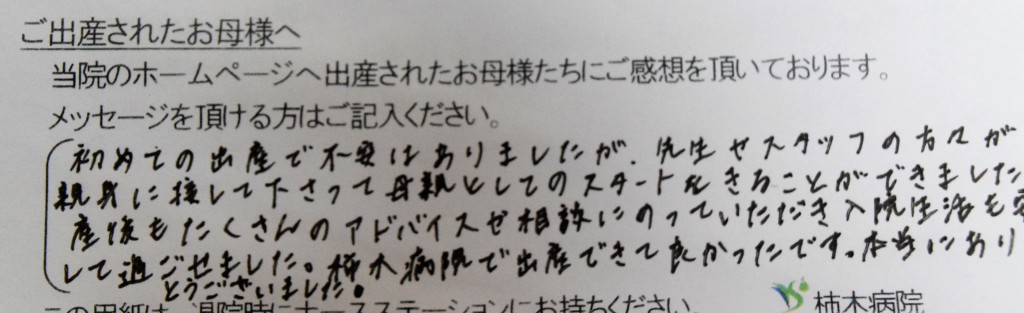 ご出産されたお母様へ
当院のホームページへ出産されたお母様たちにご感想を頂いております。
メッセージを頂ける方はご記入ください。
初めての出産で不安はありましたが、先生やスタッフの方々が
親身に接して下さって母親としてのスタートをきることができました
産後もたくさんのアドバイスや相談にのっていただき入院生活も安
して過ごせました。柿木病院で出産できて良かったです。本当にあり
とうございました。
この用紙は、退院時にナースステーションにお持ちください。
柿木病院